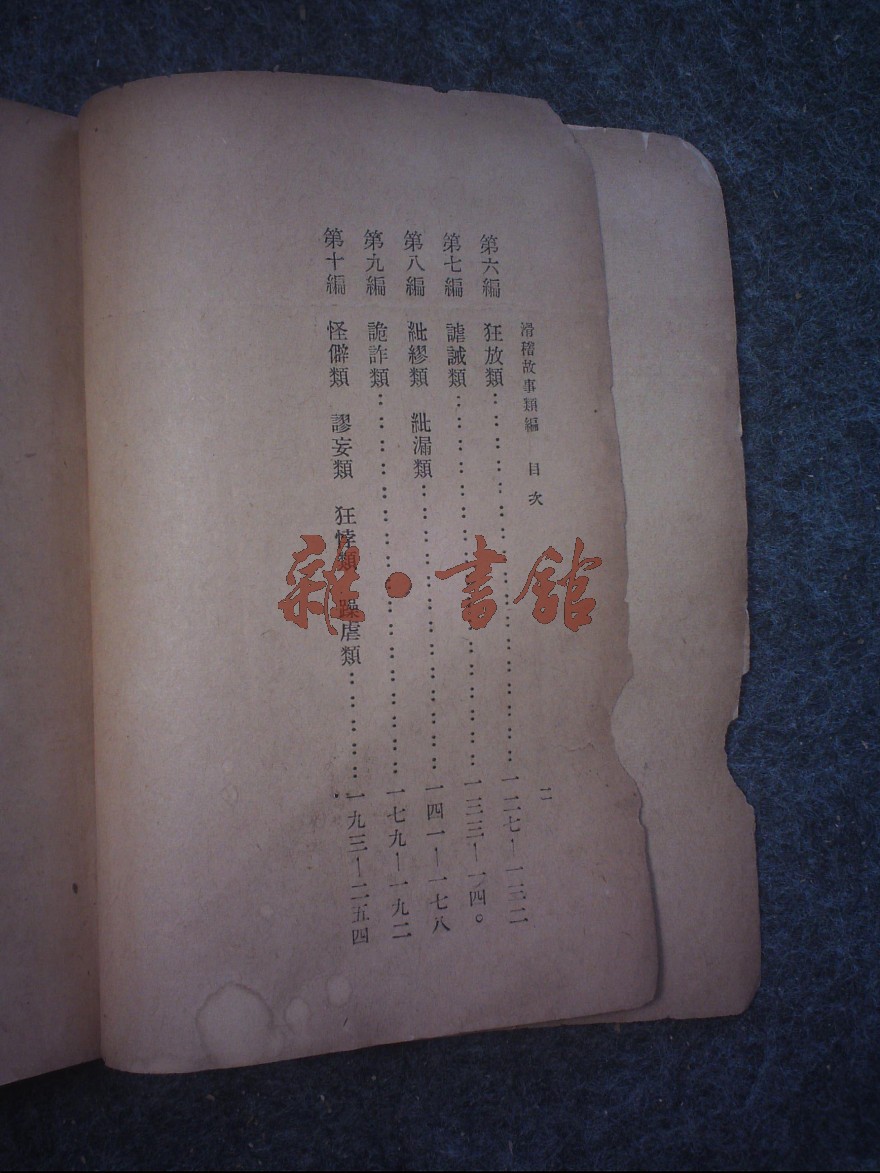 滑稽故事類編　目次　二
第六編　狂放類……………………一二七—一三二
第七編　謔誡類……………………一三三—一四〇
第八編　紕繆類　紕漏類……………………一四一—一七八
第九編　詭詐類……………………一七九—一九二
第十編　怪僻類　謬妄類　狂悖類　躁虐類……………一九三—二五四
雜·書館